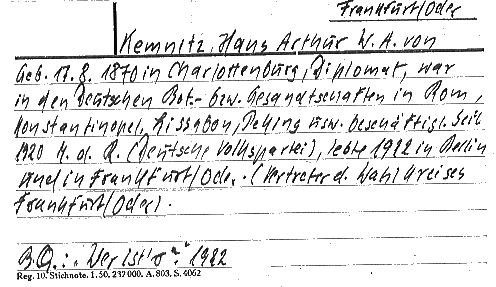 Frankfurt/Oder
Kemnitz, Hans Arthur W. A. von
Geb. 17.8. 1870 in Charlottenburg, Diplomat, war
in den Deutschen Bot.- bzw. Gesandtschaften in Rom,
Konstantinopel, Lissabon, Peking usw. beschäftigt. Seit
1920 M. d. R. (Deutsche Volkspartei), lebte 1922 in Berlin
und in Frankfurt/Oder. (Vertreter d. Wahlkreises
Frankfurt/Oder).
B.Q.: „Wer ist's" 1922
Reg. 10. Stichnote. 1. 50. 237000. A. 803. S. 4062